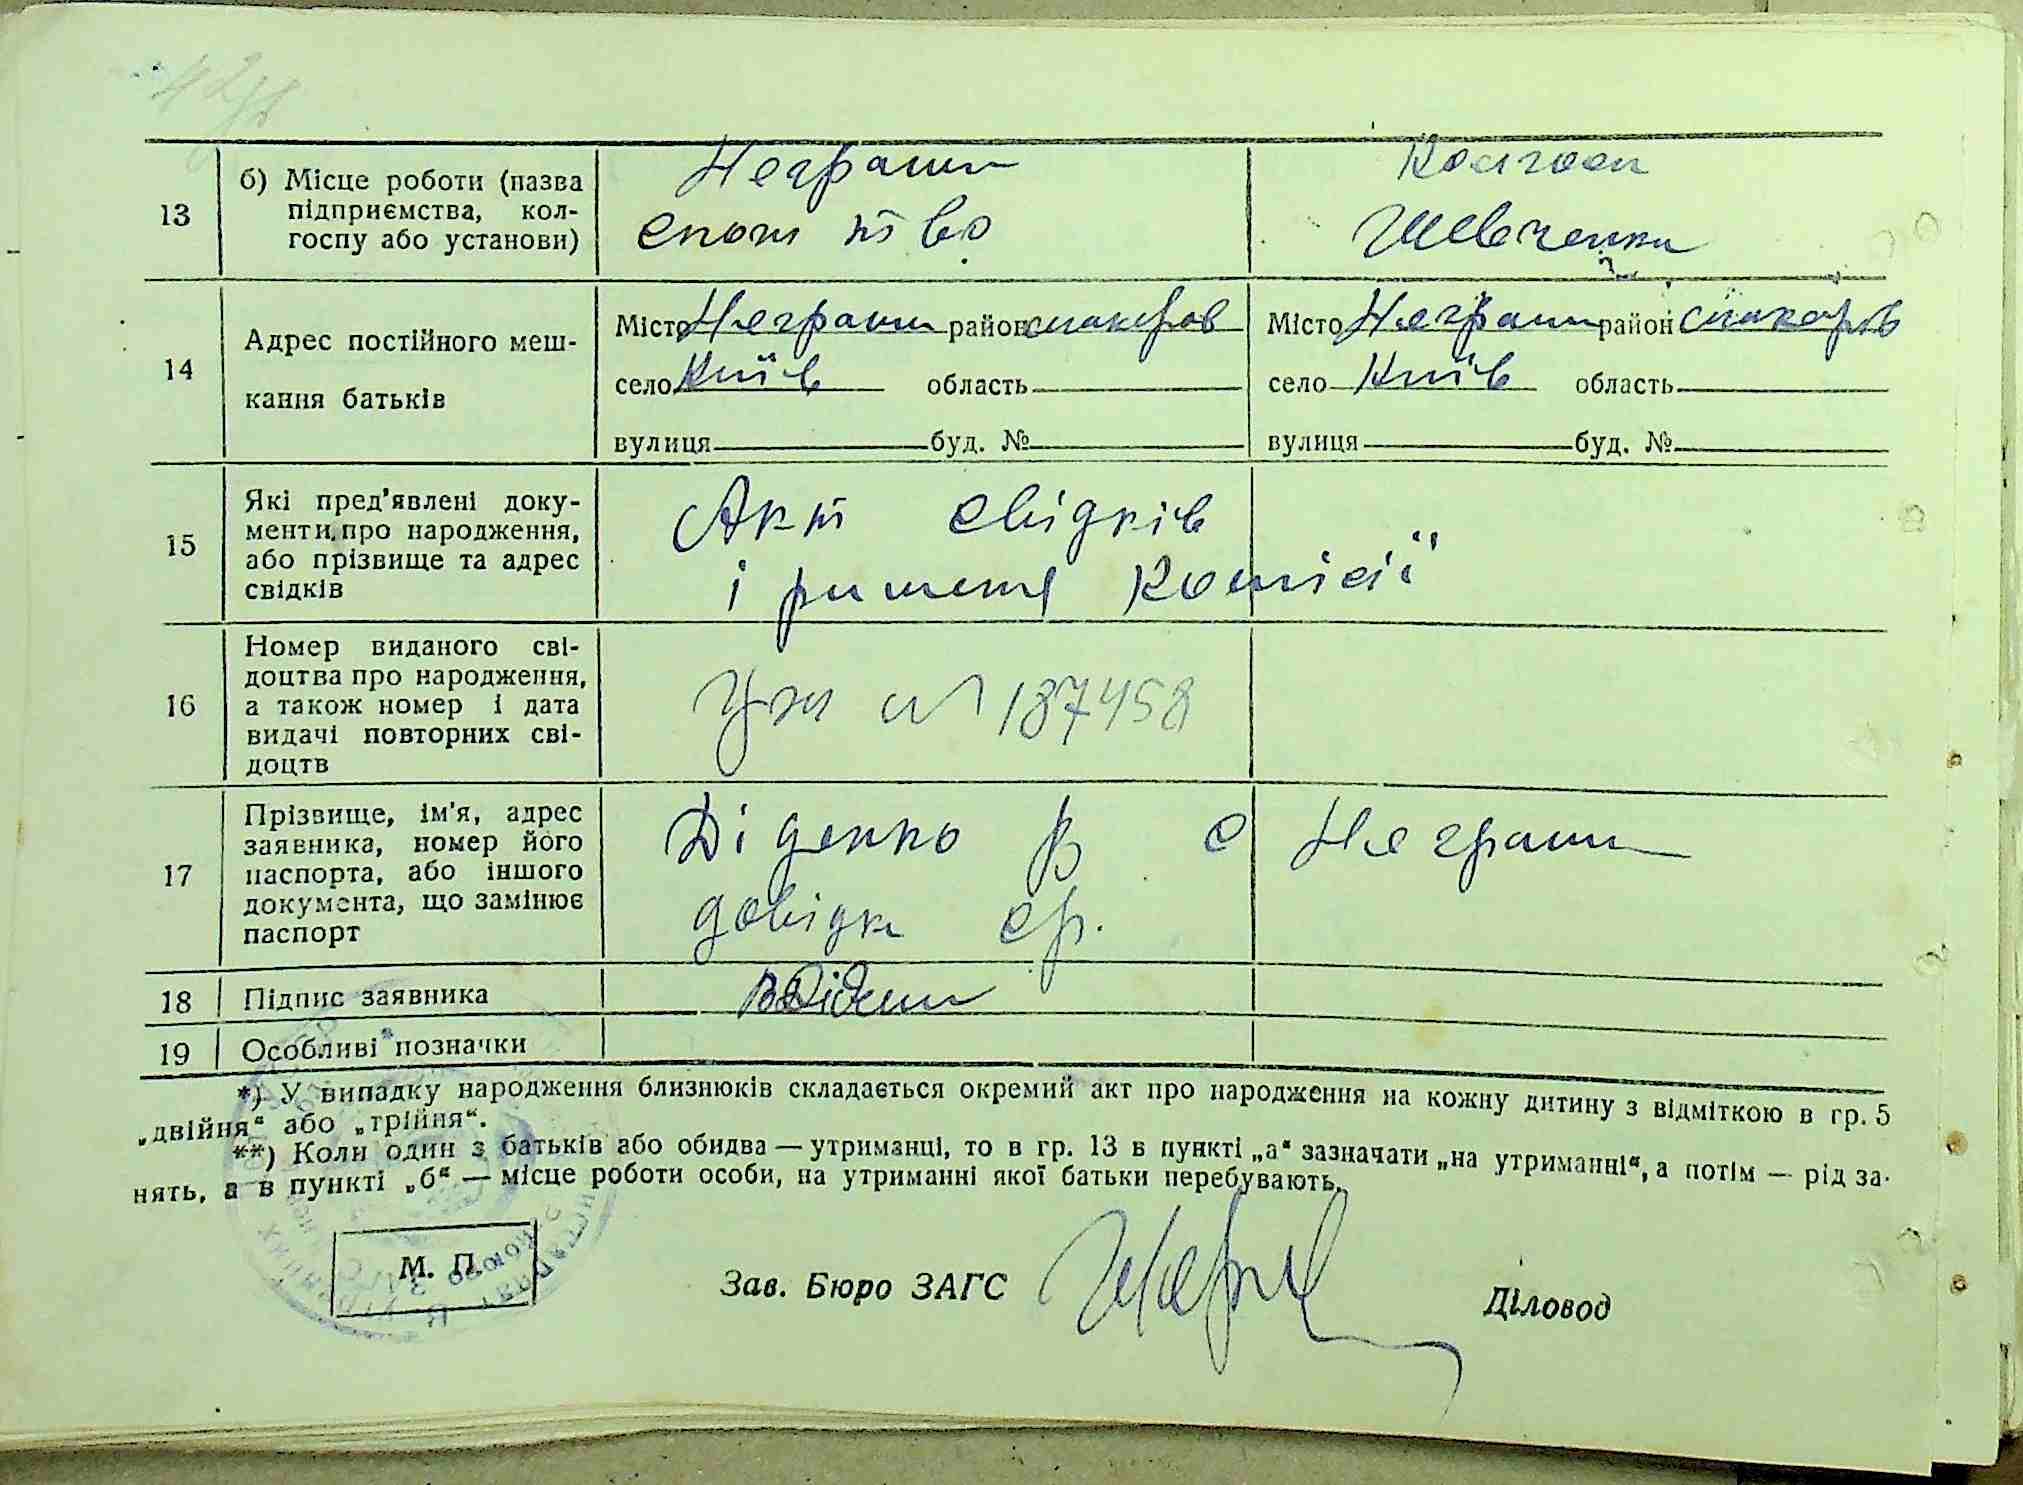 42
13
б) Місце роботи (назва
підприємства, кол-
госпу або установи)
Неграши
спож тво
Колгосп
Шевченка
14
Адрес постійного меш-
кання батьків
Місто Неграши район Макаров
село Київ область
вулиця буд. №
Місто Неграши район Макаров
село Київ область
вулиця буд. №
15
Які пред'явлені доку-
менти про народження,
або прізвище та адрес
свідків
Акт свідків
і ришеня Комісії
16
Номер виданого сві-
доцтва про народження,
а також номер і дата
видачі повторних сві-
доцтв
№ 187458
17
Прізвище, ім'я, адрес
заявника, номер його
паспорта, або іншого
документа, що замінює
паспорт
Діденко В С Неграши
довідка ср.
18
Підпис заявника
19
Особливі позначки
*) У випадку народження близнюків складається окремий акт про народження на кожну дитину з відміткою в гр. 5
„двійня“ або „трійня“.
**) Коли один з батьків або обидва — утриманці, то в гр. 13 в пункті „а“ зазначати „на утриманні“, а потім — рід за-
нять, а в пункті „б“ — місце роботи особи, на утриманні якої батьки перебувають.
М. П.
Зав. Бюро ЗАГС
Діловод